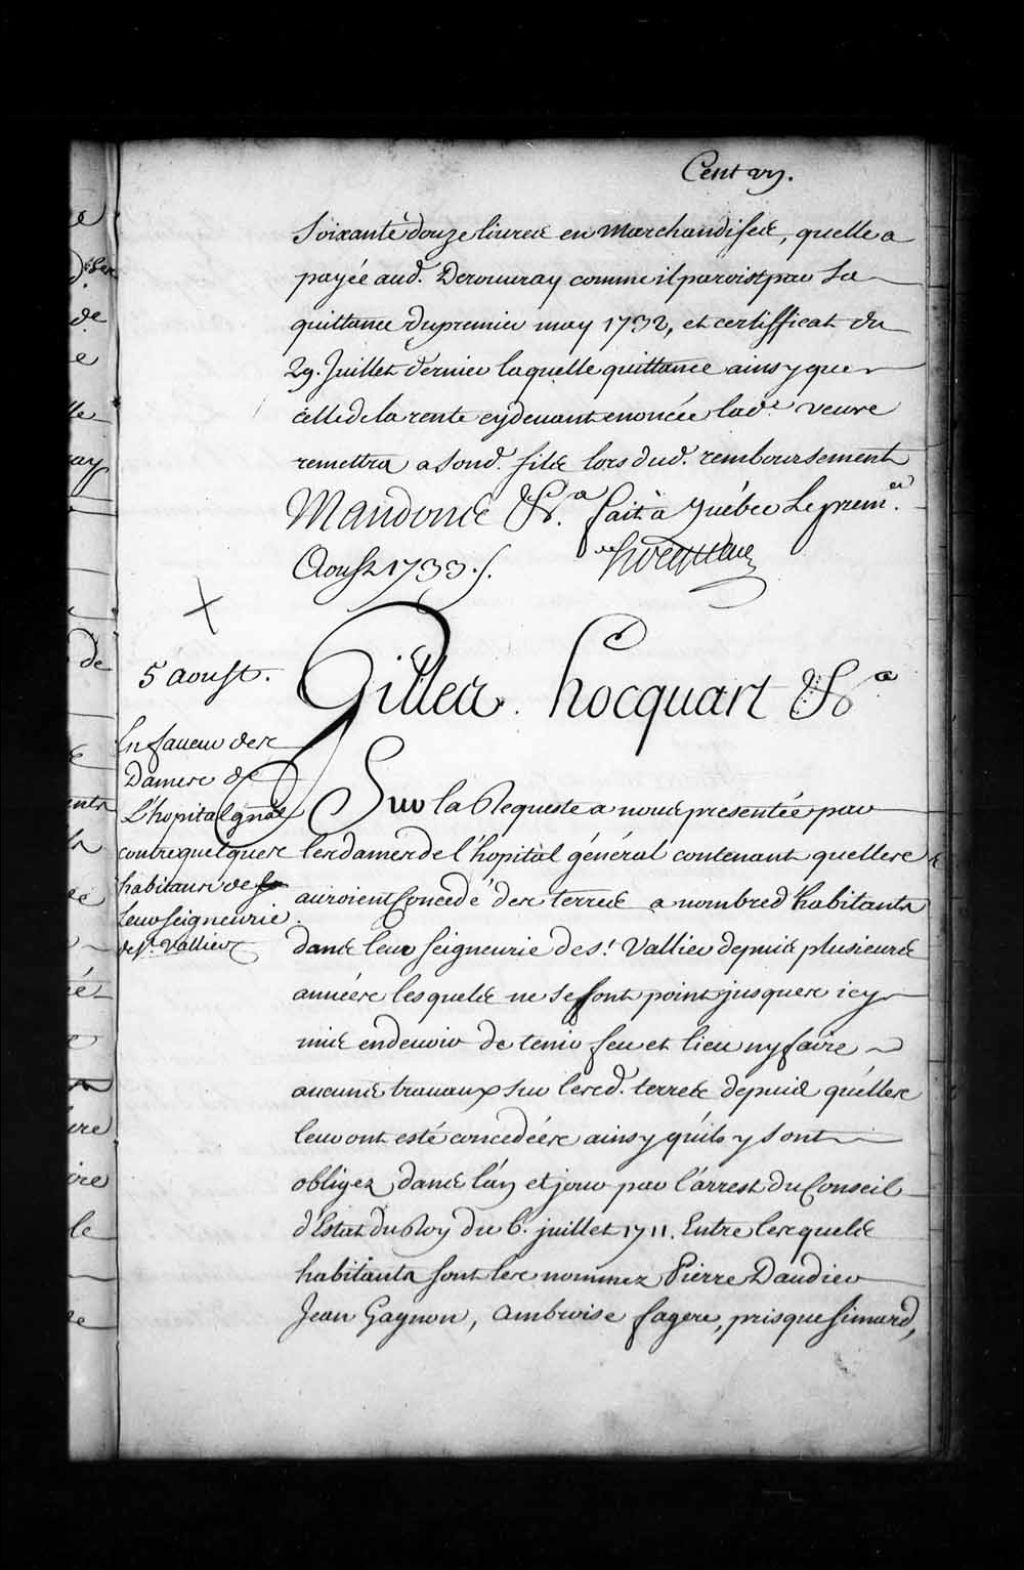 Cent un.
Soixante douze livres en marchandises, quelle a
payée aud. Derouvray comme il paroist par Sa
quittance du premier may 1732, et certifficat du
29. Juillet dernier laquelle quittance ainsy que
celle de la rente cydevant enoncée lade veuve
remettra a Sond. fils lors dud. remboursement
Mandons &a. fait à Québec Le premer.
Aoust 1733 ./. Hocquart
X
5 aoust.
En faveur des
Dames de
L'hopital gnal
contre quelques
habitans de
Leur Seigneurie
de St. Vallier
Gilles Hocquart &a
Sur la Requeste a nous presentée par
les dames de l'hopital général contenant quelles
auroient Concedé des terres a nombre d'habitants
dans leur Seigneurie de St. Vallier depuis plusieurs
années lesquels ne se sont point jusques icy
mis en devoir de tenir feu et lieu ny faire
aucuns travaux sur lesd. terres depuis qu'elles
leur ont esté concedées ainsy quils y sont
obligez dans l'an et jour par l'arrest du Conseil
d'Estat du Roy du 6. juillet 1711. Entre lesquels
habitants sont les nommez Pierre Daudier
Jean Gagnon, ambroise fagere, prisque Simard,